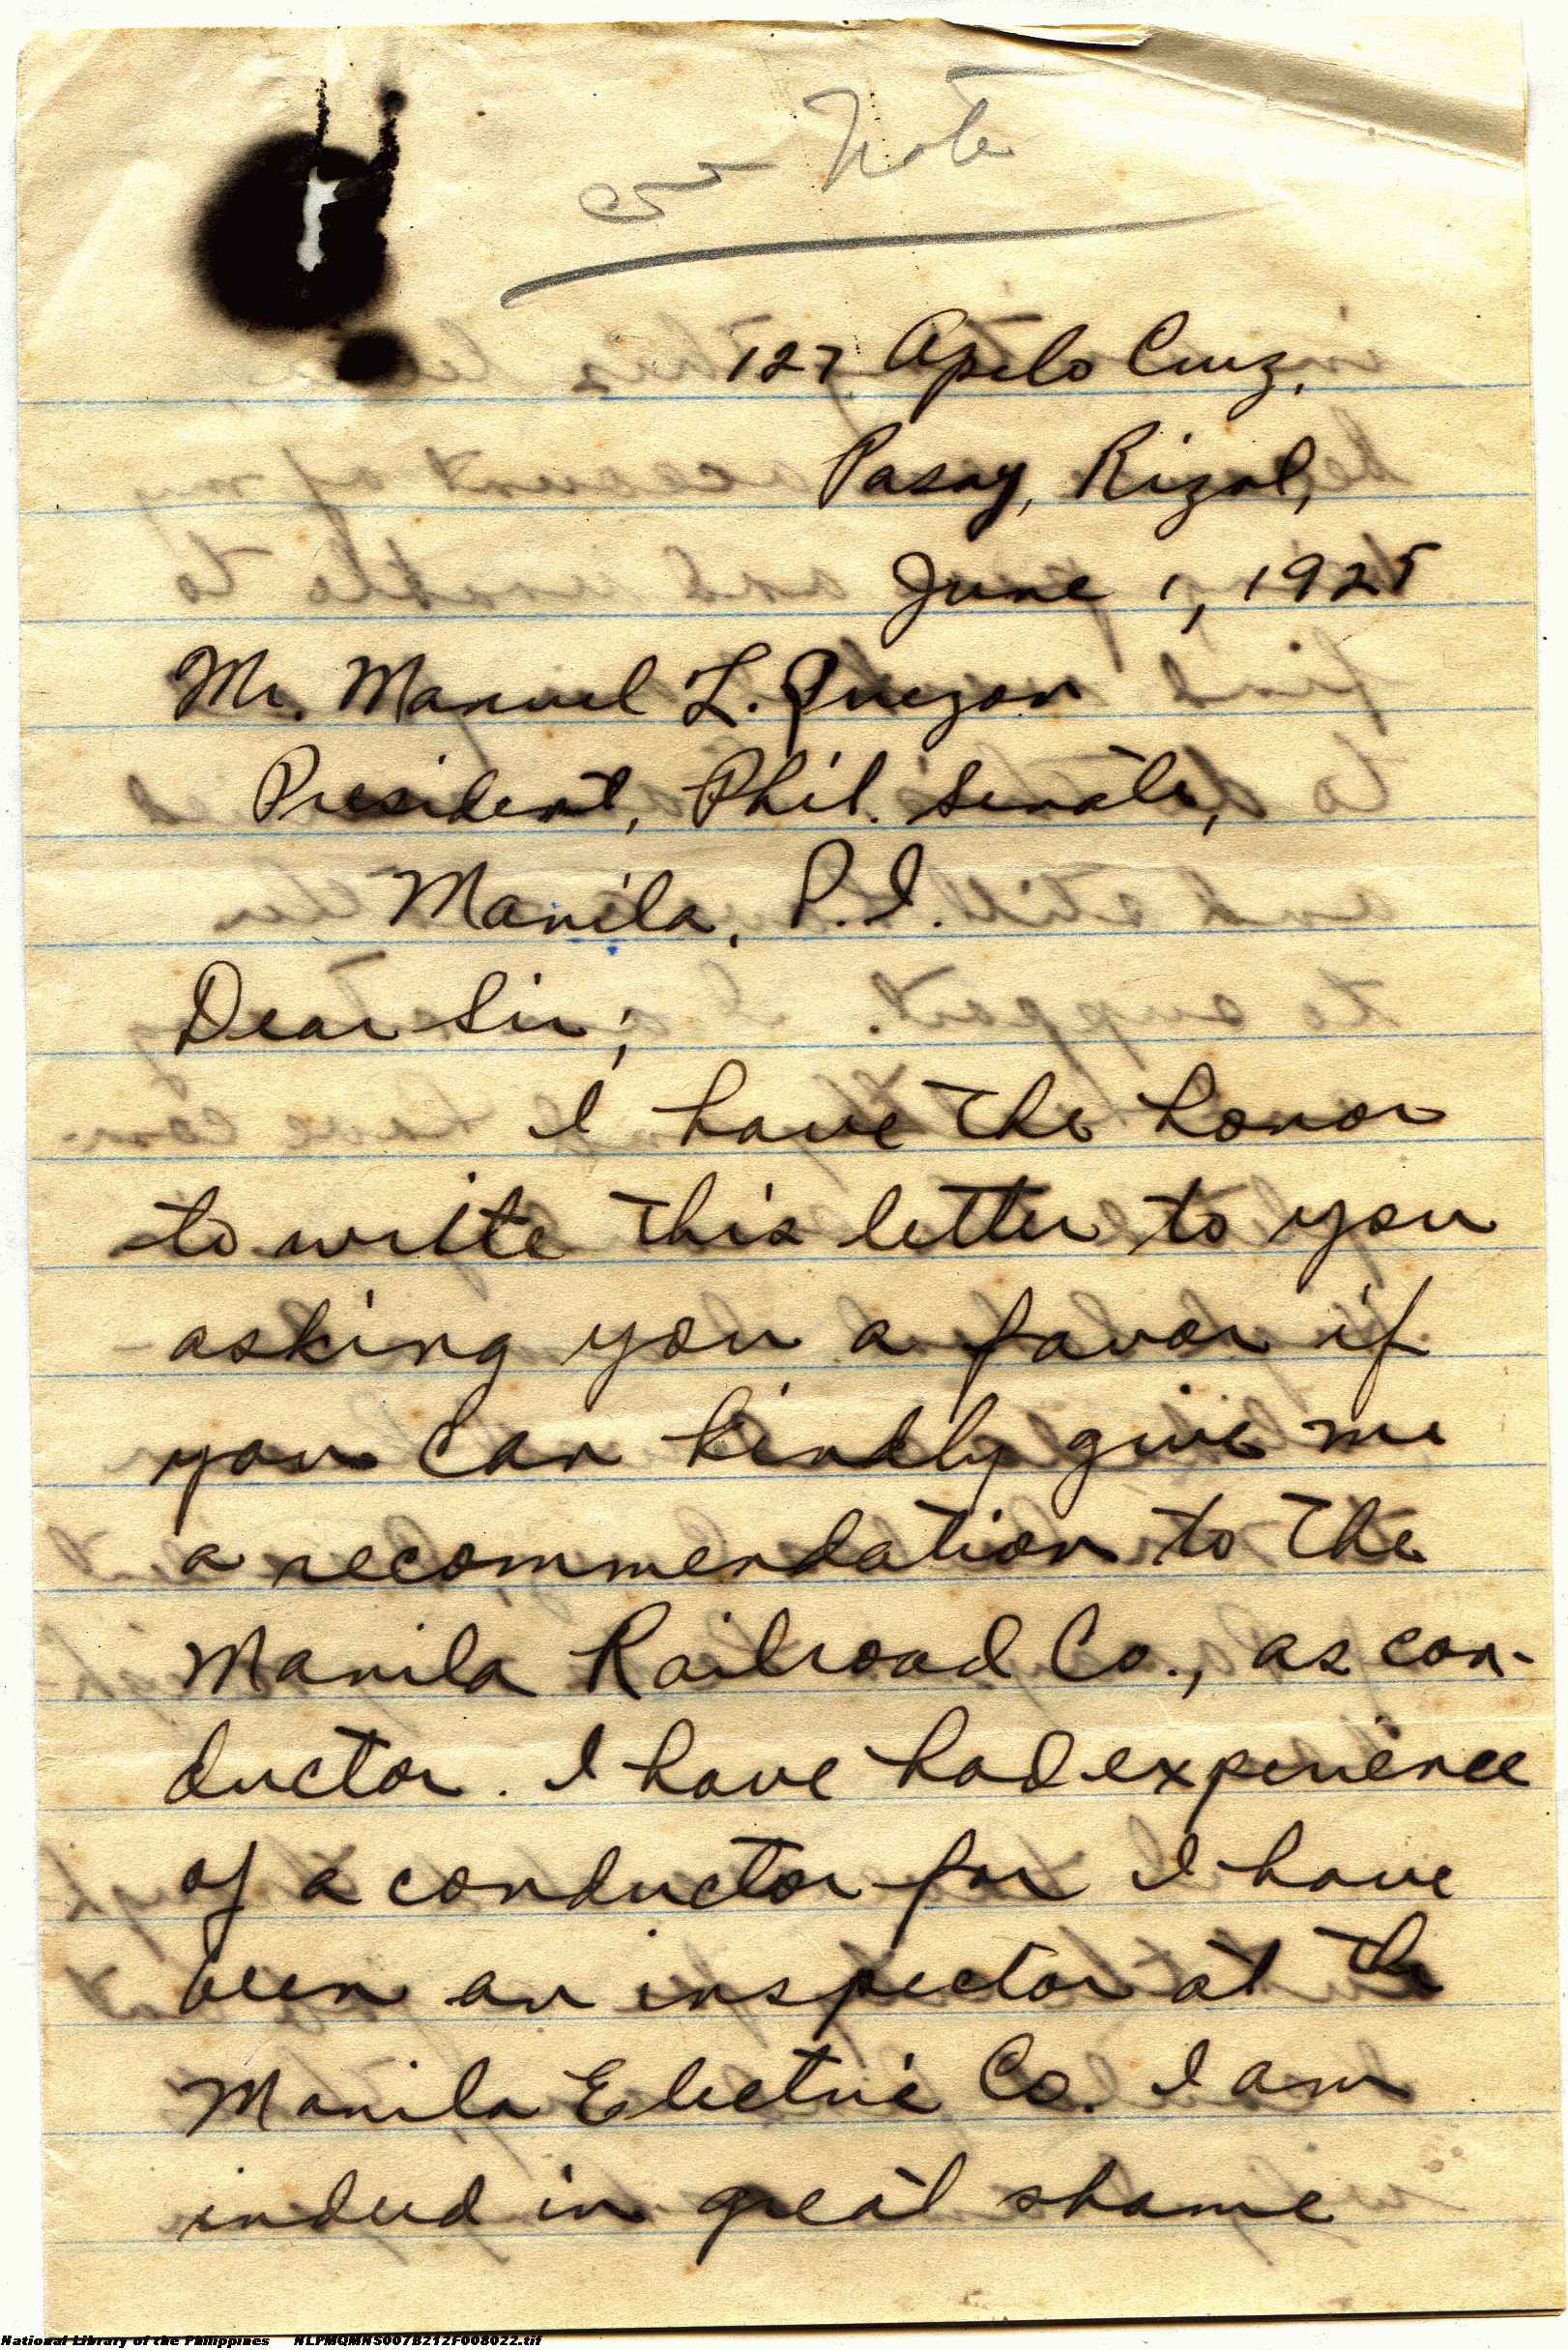 Note
127 Apelo Cruz,
Pasay, Rizal,
June 1, 1925
Mr. Manuel L. Quezon
President, Phil. Senate,
Manila, P.I.
Dear Sir;
I have the honor
to write this letter to you
asking you a favor if
you can kindly give me
a recommendation to the
Manila Railroad Co., as con-
ductor. I have had experience
of a conductor for I have
been an inspector at the
Manila Electric Co. I am
indeed in great shame
National Library of the Philippines NLPMQMNS007B212F008022.tif